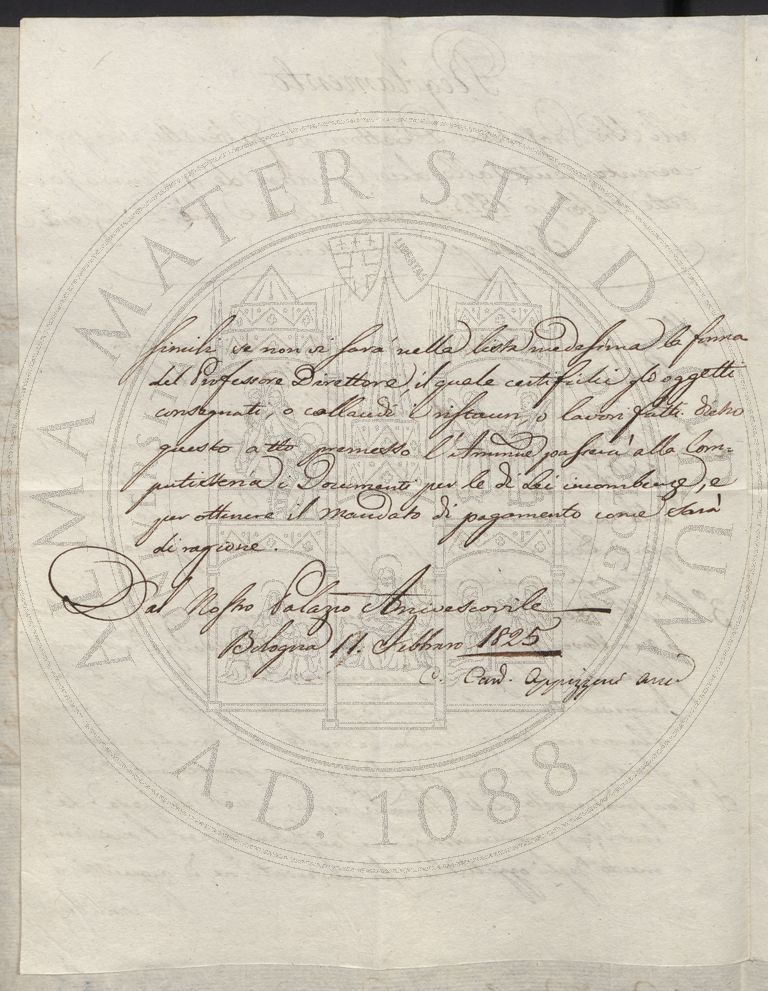 simili se non vi sarà nella lista medesima la firma
del Professore Direttore, il quale certifichi gli oggetti
consegnati, o collaudi i ristauri, o lavori fatti. Dietro
questo atto premesso l'Ammne passerà alla Com-
putisteria i Documenti per le di Lei incombenze, e
per ottenere il mandato di pagamento come sarà
di ragione.
Dal Nostro Palazzo Arcivescovile
Bologna 11. Febbraro 1825
C. Card. Oppizzoni arciv
ALMA MATER STUDIORUM
UNIVERSITÀ DI BOLOGNA
LIBERTAS
A.D. 1088